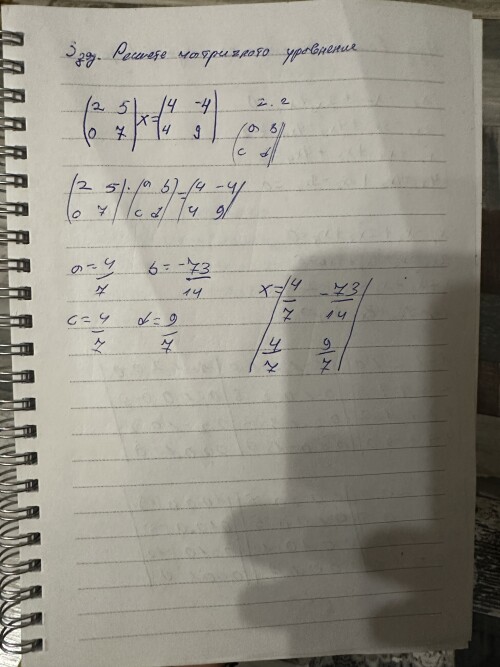 3 зад. Решете матричното уравнение
(2 5
0 7) x = (4 -4
4 9) 2.2
(a b
c d)
(2 5
0 7) . (a b
c d) = (4 -4
4 9)
a = 4/7 b = -73/14
c = 4/7 d = 9/7
x = (4/7 -73/14
4/7 9/7)